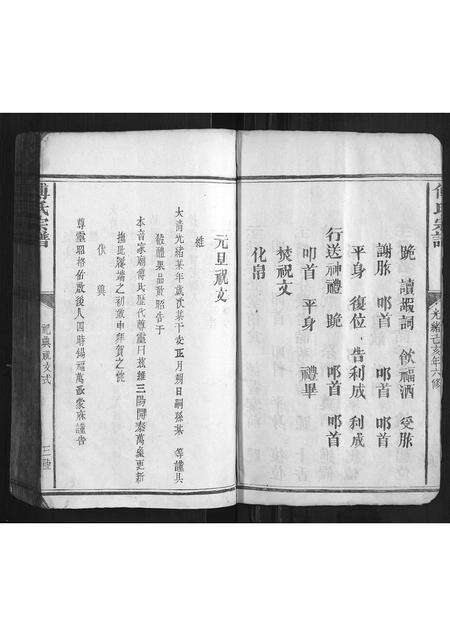 光緒己亥年六修
跪 讀嘏詞 飲福酒 受胙
謝胙 叩首 叩首 叩首
平身 復位 告利成 利成
行送神禮 跪 叩首 叩首
叩首 平身 禮畢
焚祝文
化帛
元旦祝文
維
大清光緒某年歲次某干支正月朔日嗣孫某 等謹具
牲醴果品致昭告于
本音家廟傅氏歷代尊靈曰茲維三陽開泰萬彙更新
撫茲履端之初敢申拜賀之忱
伏冀
尊靈昭格佑啟後人四時錫福萬載蒙庥謹告
傅氏宗譜
祀典祝文式